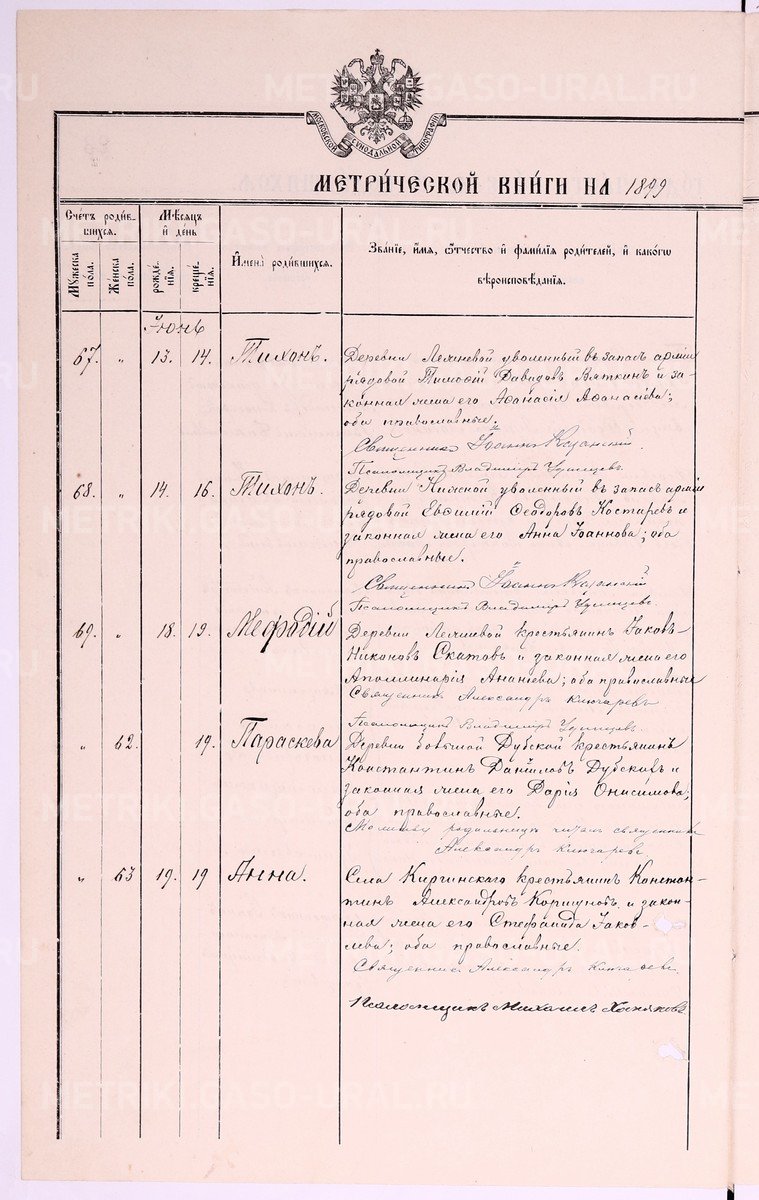 МОСКОВСКОЙ СУНОДАЛЬНОЙ ТИПОГРАФІИ
МЕТРИ́ЧЕСКОЙ КНИ́ГИ НА 1899
Сче́тъ роди́в-
шихся.
Мѣ́сяцъ
и҆ де́нь
Мꙋ́жеска по́ла.
Же́нска по́ла.
рожде́-нїѧ.
креще́-нїѧ.
И҆мена̀ роди́вшихся.
Зва́нїе, и҆́мѧ, ѻ҆́тчество и҆ фами́лїѧ роди́телей, и҆ како́гѡ
вѣроисповѣ́данїѧ.
Іюнь
67. „ 13. 14. Тихонъ. Деревни Лемневой уволенный въ запасъ арміи
рядовой Тимоѳій Давидовъ Вяткинъ и за-
конная жена его Аѳанасія Аѳанасіева;
оба православные.
Священникъ Іоаннъ Казанскій.
Псаломщикъ Владиміръ
68. „ 14. 16. Тихонъ. Деревни уволенный въ запасъ арміи
рядовой Евѳимій Ѳеодоровъ Костаревъ и
законная жена его Анна Іоаннова; оба
православные.
Священникъ Іоаннъ Казанскій
Псаломщикъ Владиміръ
69. „ 18. 19. Меѳодій Деревни Лемневой крестьянинъ Іаковъ
Никоновъ Скатовъ и законная жена его
Аполлинарія Ананіева; оба православные
Священникъ Александръ Ключаревъ
Псаломщикъ Владиміръ
„ 62. 19. Параскева Деревни Дубской крестьянинъ
Константинъ Даніиловъ Дубсковъ и
законная жена его Дарія Онисимова;
оба православные.
Молитву родильницы читалъ священникъ
Александръ Ключаревъ
„ 63 19. 19 Анна. Села Киргинскаго крестьянинъ Констан-
тинъ Александровъ Коршуновъ и закон-
ная жена его Стефанида Іаков-
лева; оба православные.
Священникъ Александръ Ключаревъ
Псаломщикъ Михаилъ Хомяковъ
METRIKI.GASO-URAL.RU